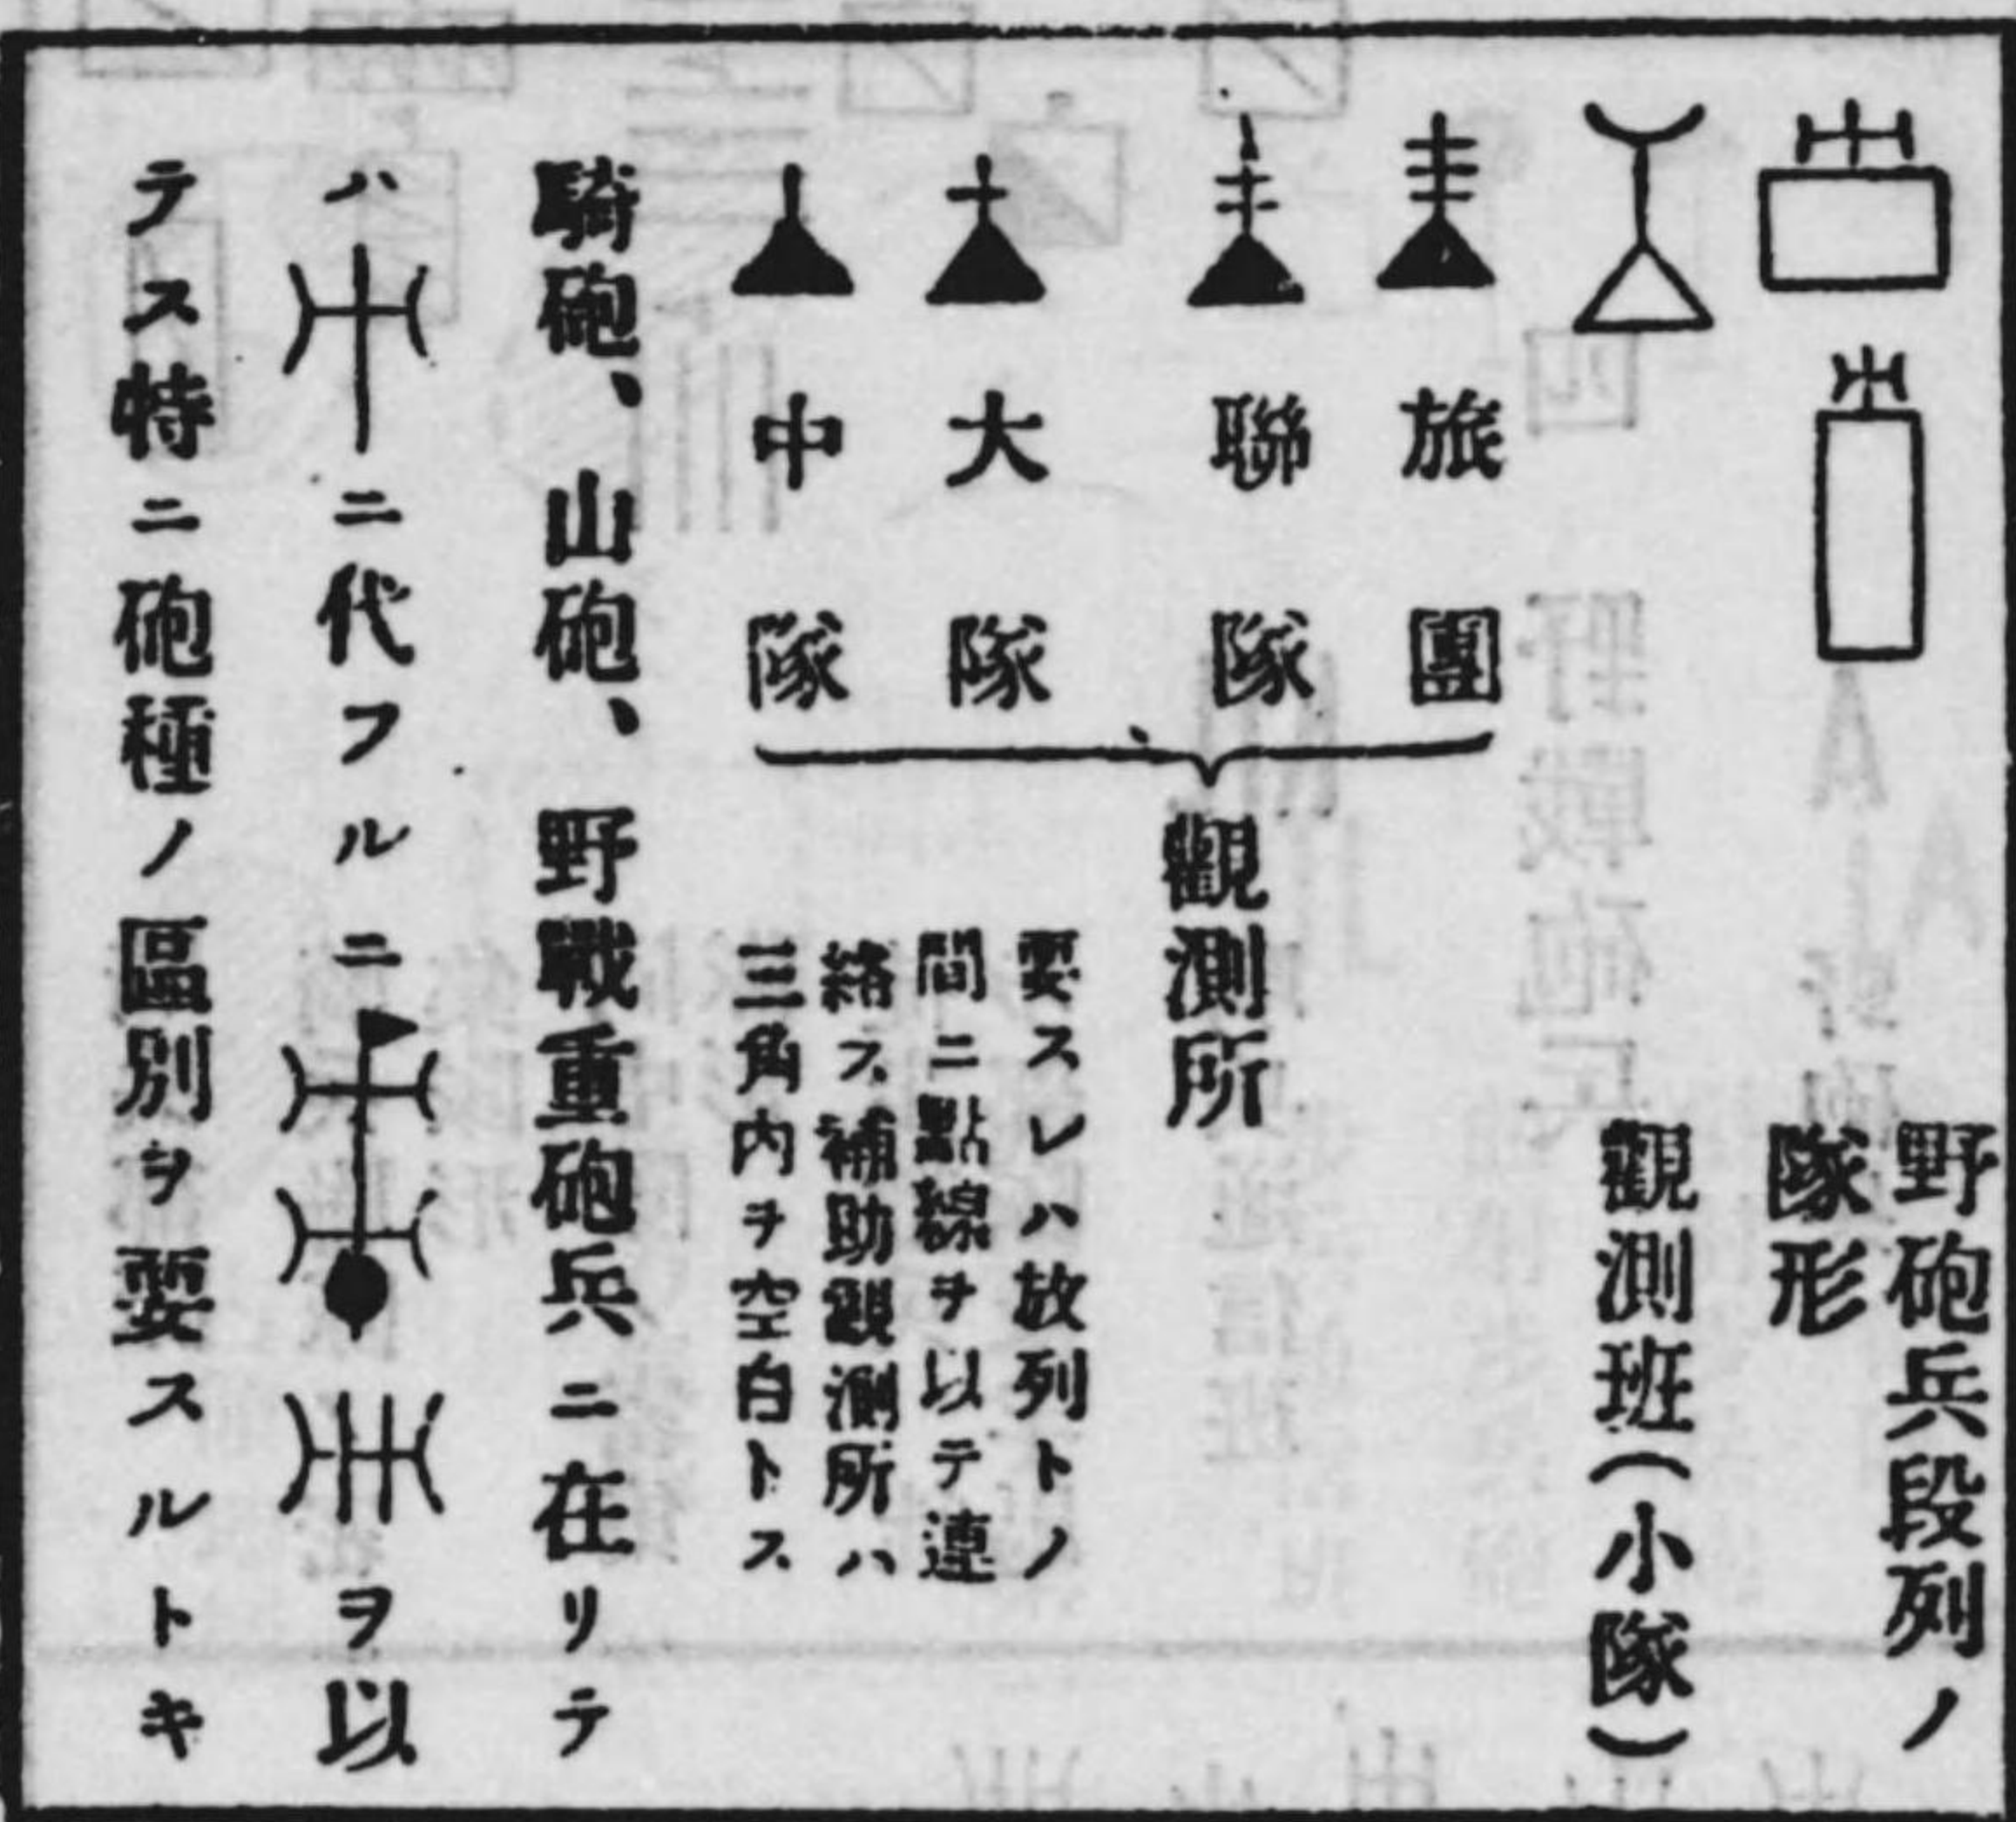 野砲兵段列ノ
隊形
觀測班(小隊)
旅團
聯隊
大隊
中隊
觀測所
要スレハ放列トノ
間ニ點線ヲ以テ連
絡ス補助觀測所ハ
三角內ヲ空白トス
騎砲、山砲、野戰重砲兵ニ在リテ
ハ ニ代フルニ ヲ以
テス特ニ砲種ノ區別ヲ要スルトキ